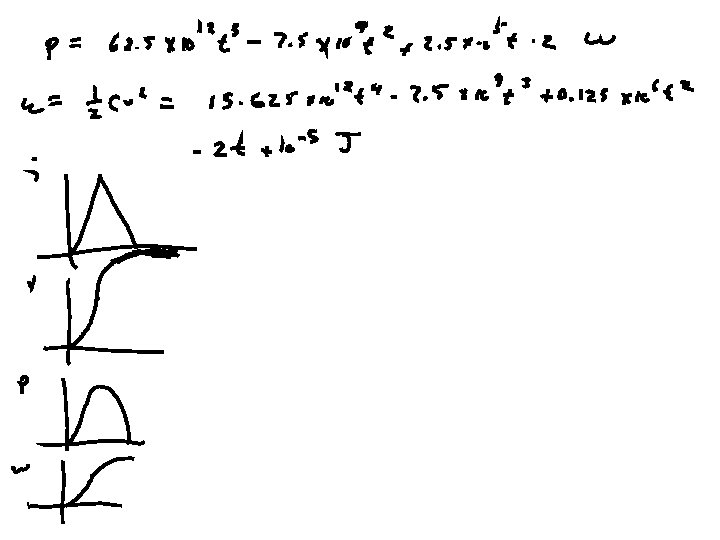 p = 62.5 x10^12 t^3 - 7.5 x10^9 t^2 + 2.5 x10^5 t - 2 W
w = 1/2 Cv^2 = 15.625 x10^12 t^4 - 2.5 x10^9 t^3 + 0.125 x10^6 t^2
- 2t + 10^-5 J
i
v
p
w